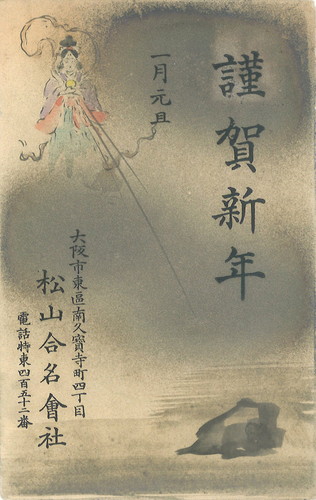 謹賀新年
一月元旦
大阪市東區南久寳寺町四丁目
松山合名會社
電話特東四百五十二番